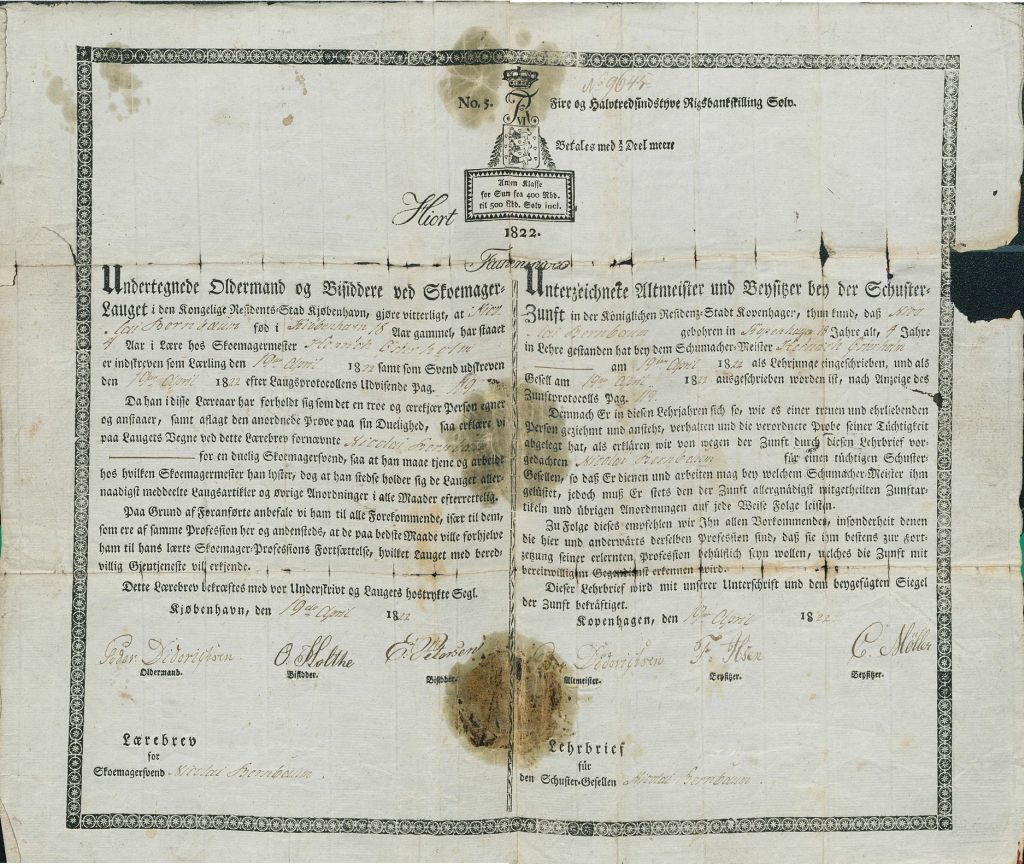 No. 5.
No 9644
Fire og Halvtredsindstyve Rigsbankskilling Sølv.
FR
VI
Betales med ½ Deel meere
Anden Klasse
for Sum fra 400 Rbd.
til 500 Rbd. Sølv incl.
Hiort
1822.
Undertegnede Oldermand og Bisiddere ved Skoemager-
Lauget i den Kongelige Residents-Stad Kjøbenhavn, gjøre vitterligt, at Nico
lai Bornbaum fød i Kiøbenhavn 18 Aar gammel, har staaet
4 Aar i Lære hos Skoemagermester Henrich
er indskreven som Lærling den 19de April 1822 samt som Svend udskreven
den 19de April 1822 efter Laugsprotocollens Udvisende Pag. 119
Da han i disse Læreaar har forholdt sig som det en troe og ærekjær Person egner
og anstaaer, samt aflagt den anordnede Prøve paa sin Duelighed, saa erklære vi
paa Laugets Vegne ved dette Lærebrev fornævnte Nicolai Bornbaum
for en duelig Skoemagersvend, saa at han maae tjene og arbeide
hos hvilken Skoemagermester han lyster, dog at han stedse holder sig de Lauget aller-
naadigst meddeelte Laugsartikler og øvrige Anordninger i alle Maader efterrettelig.
Paa Grund af Foranførte anbefale vi ham til alle Forekommende, især til dem,
som ere af samme Profession her og andensteds, at de paa bedste Maade ville forhjelpe
ham til hans lærte Skoemager-Professions Fortsættelse, hvilket Lauget med bered-
villig Gjentjeneste vil erkjende.
Dette Lærebrev bekræftes med vor Underskrivt og Laugets hostrykte Segl.
Kjøbenhavn, den 19de April 1822
Peder Diderichsen
Oldermand.
O. Holthe
Bisidder.
E. Petersen
Bisidder.
Lærebrev
for
Skoemagersvend Nicolai Bornbaum.
Unterzeichnete Altmeister und Beysitzer bey der Schuster-
Zunft in der Königlichen Residenz-Stadt Kopenhagen, thun kund, daß Nico
lai Bornbaum gebohren in Kopenhagen 18 Jahre alt, 4 Jahre
in Lehre gestanden hat bey dem Schumacher-Meister Heinrich
am 19ten April 1822 als Lehrjunge eingeschrieben, und als
Gesell am 19ten April 1822 ausgeschrieben worden ist, nach Anzeige des
Zunftprotocolls Pag. 119.
Demnach Er in diesen Lehrjahren sich so, wie es einer treuen und ehrliebenden
Person geziehmt und ansteht, verhalten und die verordnete Probe seiner Tüchtigkeit
abgelegt hat, als erklären wir von wegen der Zunft durch diesen Lehrbrief vor-
gedachten Nicolai Bornbaum für einen tüchtigen Schuster-
Gesellen, so daß Er dienen und arbeiten mag bey welchem Schumacher-Meister ihn
gelüstet, jedoch muß Er stets den der Zunft allergnädigst mitgetheilten Zunftar-
tikeln und übrigen Anordnungen auf jede Weise Folge leisten.
Zu Folge dieses empfehlen wir Ihn allen Vorkommenden, insonderheit denen
die hier und anderwärts derselben Profession sind, daß sie ihm bestens zur Fort-
setzung seiner erlernten Profession behülflich seyn wollen, welches die Zunft mit
bereitwilligem Gegendienst erkennen wird.
Dieser Lehrbrief wird mit unserer Unterschrift und dem beygefügten Siegel
der Zunft bekräftiget.
Kopenhagen, den 19ten April 1822
Diderichsen
Altmeister.
F. Ilsen
Beysitzer.
C. Möller
Beysitzer.
Lehrbrief
für
den Schuster-Gesellen Nicolai Bornbaum.